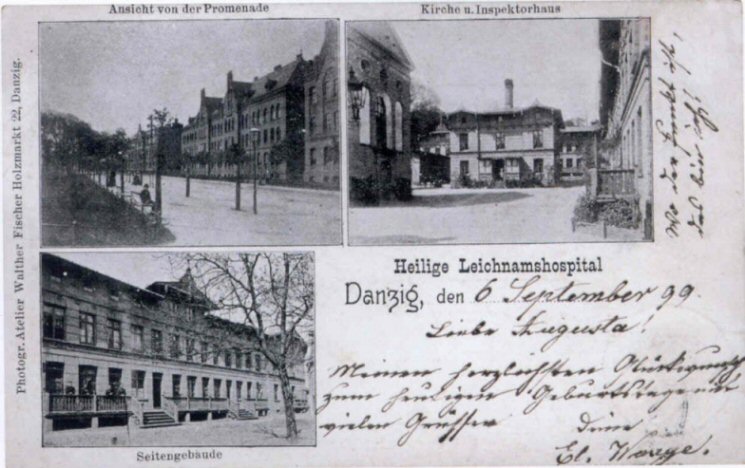 Ansicht von der Promenade
Kirche u. Inspektorhaus
Photogr. Atelier Walther Fischer Holzmarkt 22, Danzig.
Wo der Punkt ist,
das bin ich!
Heilige Leichnamshospital
Danzig, den 6. September 99.
Liebe Augusta!
Meinen herzlichsten Glückwunsch
zum heutigen Geburtstage mit
vielen Grüssen Deine
El.
Seitengebäude